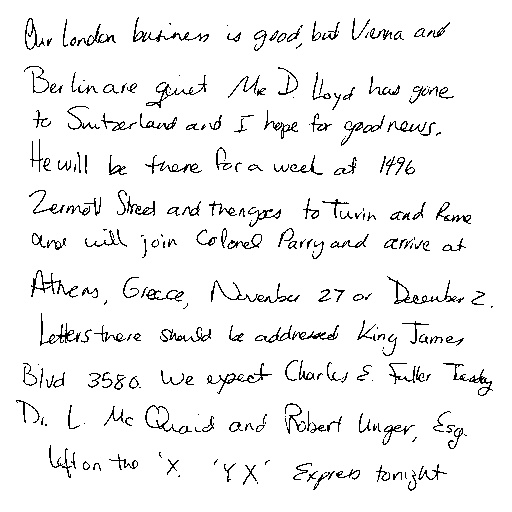 Our London business is good, but Vienna and
Berlin are quiet Mr. D. Lloyd has gone
to Switzerland and I hope for good news.
He will be there for a week at 1496
Zermott Street and then goes to Turin and Rome
and will join Colonel Parry and arrive at
Athens, Greece, November 27 or December 2.
Letters there should be addressed King James
Blvd 3580. We expect Charles E. Fuller Tuesday
Dr. L. McQuaid and Robert Unger, Esq.
left on the 'X. 'Y X' Express tonight